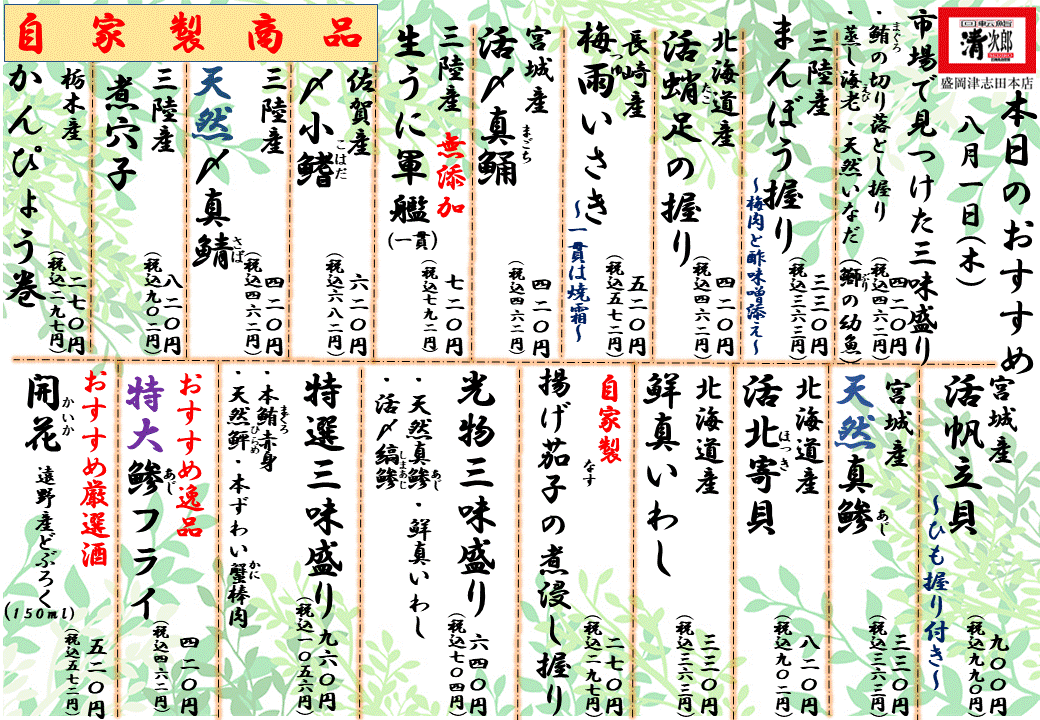 回転鮨
清次郎
盛岡津志田本店
本日のおすすめ
八月一日(木)
市場で見つけた三味盛り
・鮪の切り落とし握り
まぐろ
・蒸し海老・天然いなだ(鰤の幼魚)
えび
ぶり
四二〇円
(税込四六二円)
三陸産
まんぼう握り
~梅肉と酢味噌添え~
三三〇円
(税込三六三円)
北海道産
活蛸足の握り
たこ
四二〇円
(税込四六二円)
長崎産
梅雨いさき
つゆ
~一貫は焼霜~
五二〇円
(税込五七二円)
宮城産
活〆真鯒
まごち
四二〇円
(税込四六二円)
三陸産
無添加
生うに軍艦
(一貫)
七二〇円
(税込七九二円)
自家製商品
佐賀産
〆小鰭
こはだ
六二〇円
(税込六八二円)
三陸産
天然〆真鯖
さば
四二〇円
(税込四六二円)
三陸産
煮穴子
八二〇円
(税込九〇二円)
栃木産
かんぴょう巻
二七〇円
(税込二九七円)
宮城産
活帆立貝
~ひも握り付き~
九〇〇円
(税込九九〇円)
宮城産
天然真鯵
あじ
三三〇円
(税込三六三円)
北海道産
活北寄貝
ほっき
八二〇円
(税込九〇二円)
北海道産
鮮真いわし
三三〇円
(税込三六三円)
自家製
揚げ茄子の煮浸し握り
なす
二七〇円
(税込二九七円)
光物三味盛り
・天然真鯵・鮮真いわし
あじ
・活〆縞鯵
しまあじ
六四〇円
(税込七〇四円)
特選三味盛り
・本鮪赤身
まぐろ
・天然鮃・本ずわい蟹棒肉
ひらめ
かに
九六〇円
(税込一〇五六円)
おすすめ逸品
特大鯵フライ
あじ
四二〇円
(税込四六二円)
おすすめ厳選酒
開花
かいか
遠野産どぶろく(150ml)
五二〇円
(税込五七二円)